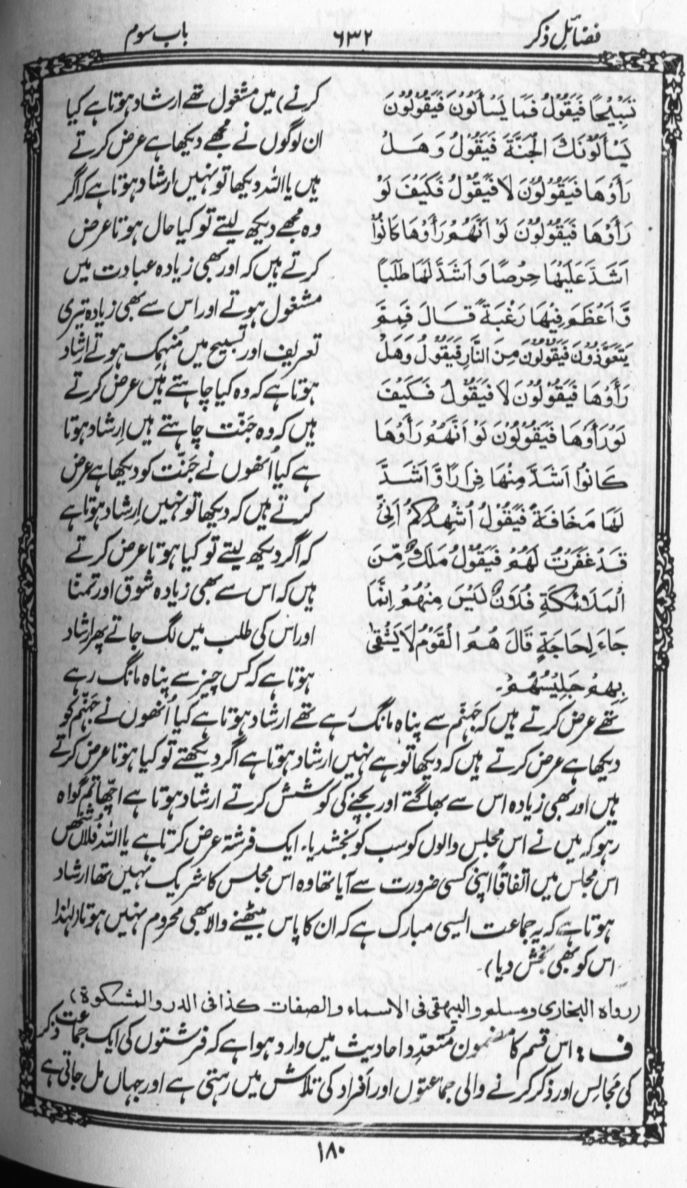 فضائلِ ذکر
۶۳۲
باب سوم
تَسْبِيْحًا فَيَقُوْلُ فَمَا يَسْأَلُوْنَ فَيَقُوْلُوْنَ
يَسْأَلُوْنَكَ الْجَنَّةَ فَيَقُوْلُ وَهَلْ
رَأَوْهَا فَيَقُوْلُوْنَ لَا فَيَقُوْلُ فَكَيْفَ لَوْ
رَأَوْهَا فَيَقُوْلُوْنَ لَوْ اَنَّهُمْ رَأَوْهَا كَانُوْا
اَشَدَّ عَلَيْهَا حِرْصًا وَاَشَدَّ لَهَا طَلَبًا
وَّاَعْظَمَ فِيْهَا رَغْبَةً قَالَ فَمِمَّ
يَتَعَوَّذُوْنَ فَيَقُوْلُوْنَ مِنَ النَّارِ فَيَقُوْلُ وَهَلْ
رَأَوْهَا فَيَقُوْلُوْنَ لَا فَيَقُوْلُ فَكَيْفَ
لَوْ رَأَوْهَا فَيَقُوْلُوْنَ لَوْ اَنَّهُمْ رَأَوْهَا
كَانُوْا اَشَدَّ مِنْهَا فِرَارًا وَّاَشَدَّ
لَهَا مَخَافَةً فَيَقُوْلُ اُشْهِدُكُمْ اَنِّىْ
قَدْ غَفَرْتُ لَهُمْ فَيَقُوْلُ مَلَكٌ مِّنَ
الْمَلَائِكَةِ فُلَانٌ لَيْسَ مِنْهُمْ اِنَّمَا
جَاءَ لِحَاجَةٍ قَالَ هُمُ الْقَوْمُ لَا يَشْقٰى
بِهِمْ جَلِيْسُهُمْ۔
کرنے) میں مشغول تھے ارشاد ہوتا ہے کیا
ان لوگوں نے مجھے دیکھا ہے عرض کرتے
ہیں یا اللہ دیکھا تو نہیں ارشاد ہوتا ہے کہ اگر
وہ مجھے دیکھ لیتے تو کیا حال ہوتا عرض
کرتے ہیں کہ اور بھی زیادہ عبادت میں
مشغول ہوتے اور اس سے بھی زیادہ تیری
تعریف اور تسبیح میں مُنہمک ہوتے ارشاد
ہوتا ہے کہ وہ کیا چاہتے ہیں عرض کرتے
ہیں کہ وہ جنّت چاہتے ہیں اِرشاد ہوتا
ہے کیا اُنھوں نے جنّت کو دیکھا ہے عرض
کرتے ہیں کہ دیکھا تو نہیں اِرشاد ہوتا ہے
کہ اگر دیکھ لیتے تو کیا ہوتا عرض کرتے
ہیں کہ اس سے بھی زیادہ شوق اور تمنا
اور اس کی طلب میں لگ جاتے پھر ارشاد
ہوتا ہے کہ کس چیز سے پناہ مانگ رہے
تھے عرض کرتے ہیں کہ جہنّم سے پناہ مانگ رہے تھے ارشاد ہوتا ہے کیا اُنھوں نے جہنّم کو
دیکھا ہے عرض کرتے ہیں کہ دیکھا تو ہے نہیں ارشاد ہوتا ہے اگر دیکھتے تو کیا ہوتا عرض کرتے
ہیں اور بھی زیادہ اس سے بھاگتے اور بچنے کی کوشش کرتے ارشاد ہوتا ہے اچھا تم گواہ
رہو کہ میں نے اس مجلس والوں کو سب کو بخشدیا۔ ایک فرشتہ عرض کرتا ہے یا اللہ فلاں شخص
اس مجلس میں اتفاقاً اپنی کسی ضرورت سے آیا تھا وہ اس مجلس کا شریک نہیں تھا ارشاد
ہوتا ہے کہ یہ جماعت ایسی مبارک ہے کہ ان کا پاس بیٹھنے والا بھی محروم نہیں ہوتا (لہٰذا
اس کو بھی بخش دیا)۔
(رواه البخارى ومسلم والبيهقى فى الاسماء والصفات كذا فى الدر والمشكوة)
ف : اس قسم کا مضمون متعدّد احادیث میں وارد ہوا ہے کہ فرشتوں کی ایک جماعت ذکر
کی مجالِس اور ذکر کرنے والی جماعتوں اور اَفراد کی تلاش میں رہتی ہے اور جہاں مل جاتی ہے
۱۸۰